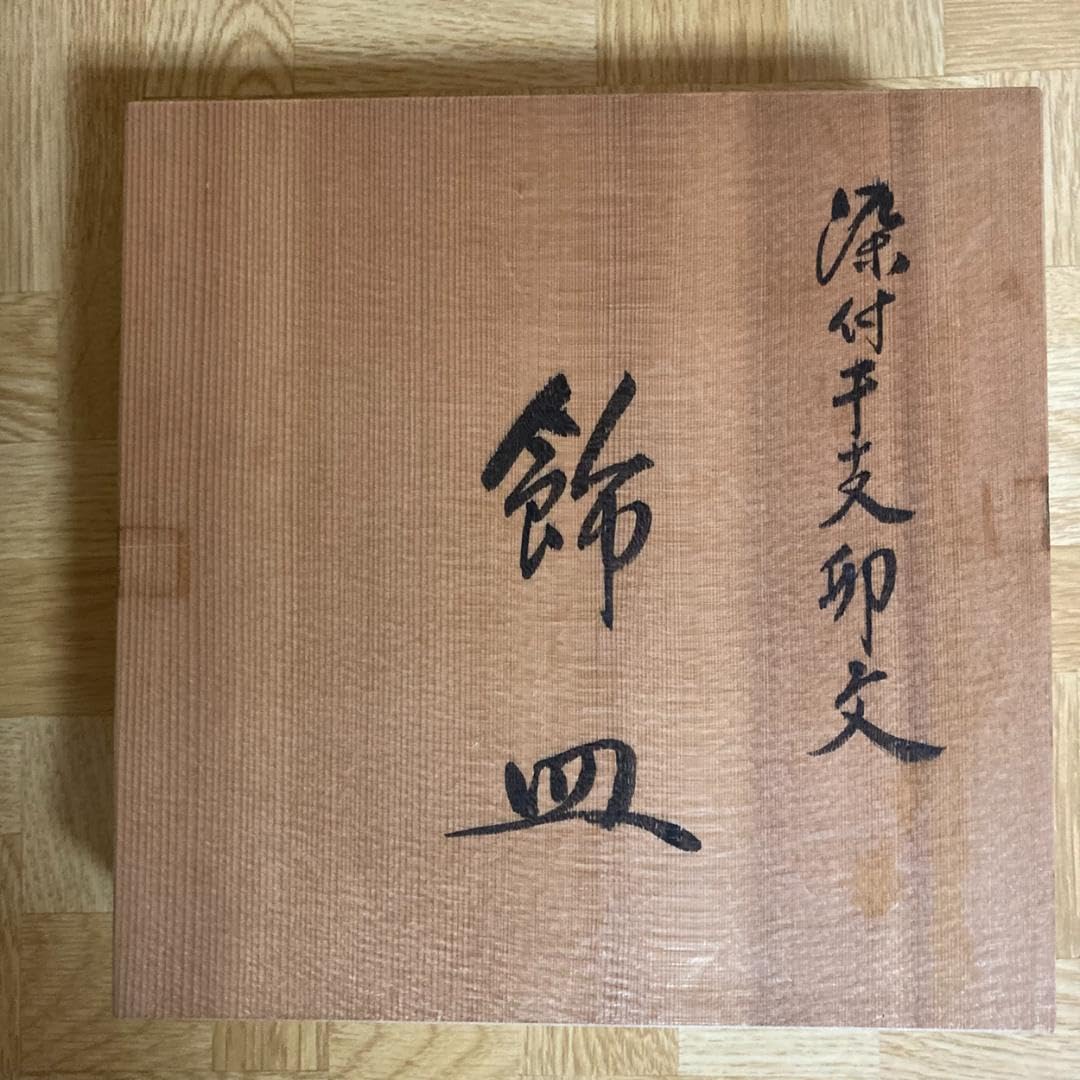 染付干支卯文
飾皿